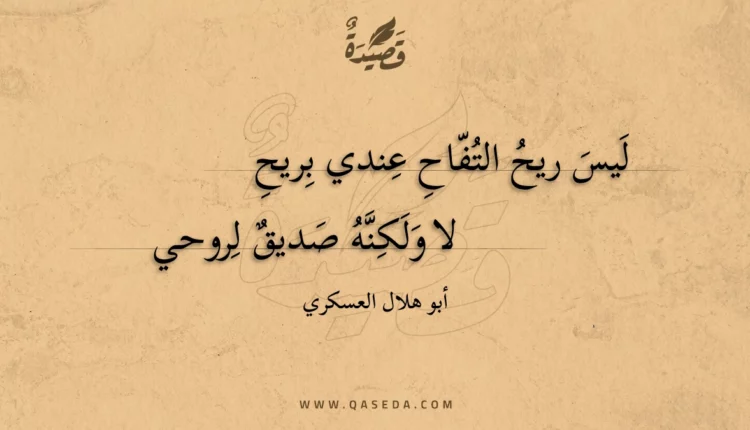 قَصِيْدَةٌ
لَيسَ ريحُ التُفّاحِ عِندي بِريحِ
لا وَلَكِنَّهُ صَديقٌ لِروحي
أبو هلال العسكري
WWW.QASEDA.COM